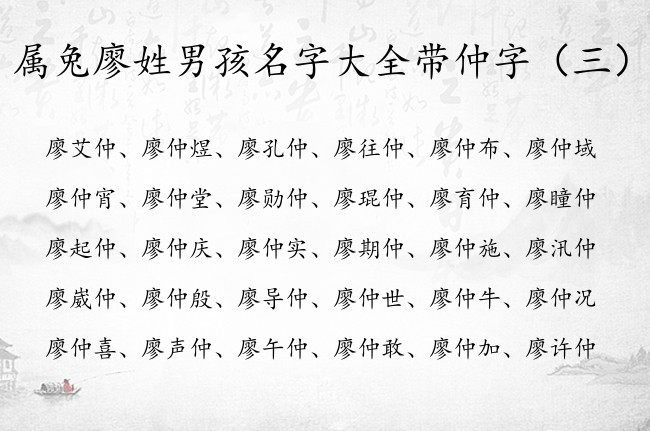 属兔廖姓男孩名字大全带仲字（三）
廖艾仲、廖仲煜、廖孔仲、廖往仲、廖仲布、廖仲域
廖仲宵、廖仲堂、廖勋仲、廖琨仲、廖育仲、廖瞳仲
廖起仲、廖仲庆、廖仲实、廖期仲、廖仲施、廖汛仲
廖崴仲、廖仲殷、廖导仲、廖仲世、廖仲牛、廖仲况
廖仲喜、廖声仲、廖午仲、廖仲敢、廖仲加、廖许仲